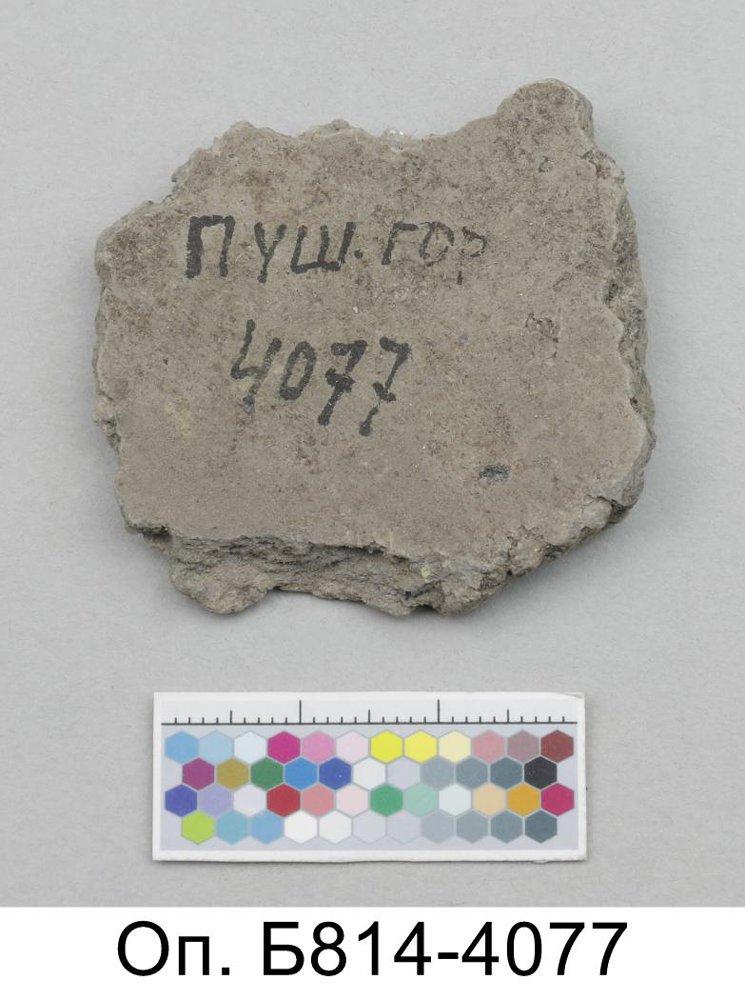 ПУШ.ГОР
4077
Оп. Б814-4077